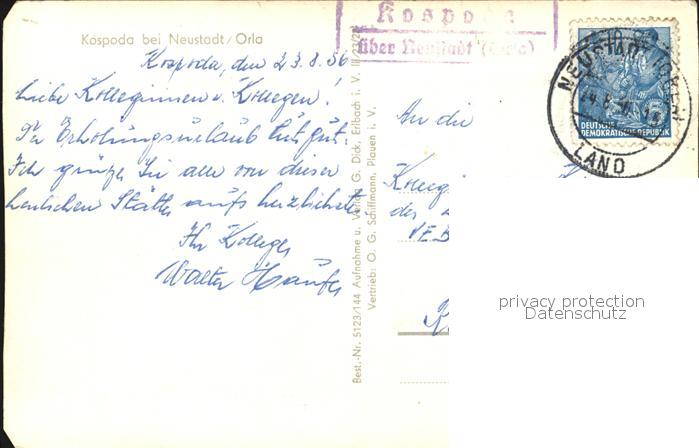 Kospoda bei Neustadt/Orla
Kospoda
über Neustadt (Orla)
Kospoda, den 23.8.56
Liebe Kolleginnen u. Kollegen!
Der Erholungsurlaub tut gut.
Ich grüße Sie alle von dieser
herrlichen Stätte aufs herzlichste!
Ihr Kollege
Walter
Best.-Nr. 5123/144 Aufnahme u. Verlag G. Dick, Erbach i. V.
Vertrieb: O. G. Schiffmann, Plauen i. V.
An die
Kolleg
des
VEB
NEUSTADT (ORLA)
LAND
DEUTSCHE
DEMOKRATISCHE REPUBLIK
privacy protection
Datenschutz